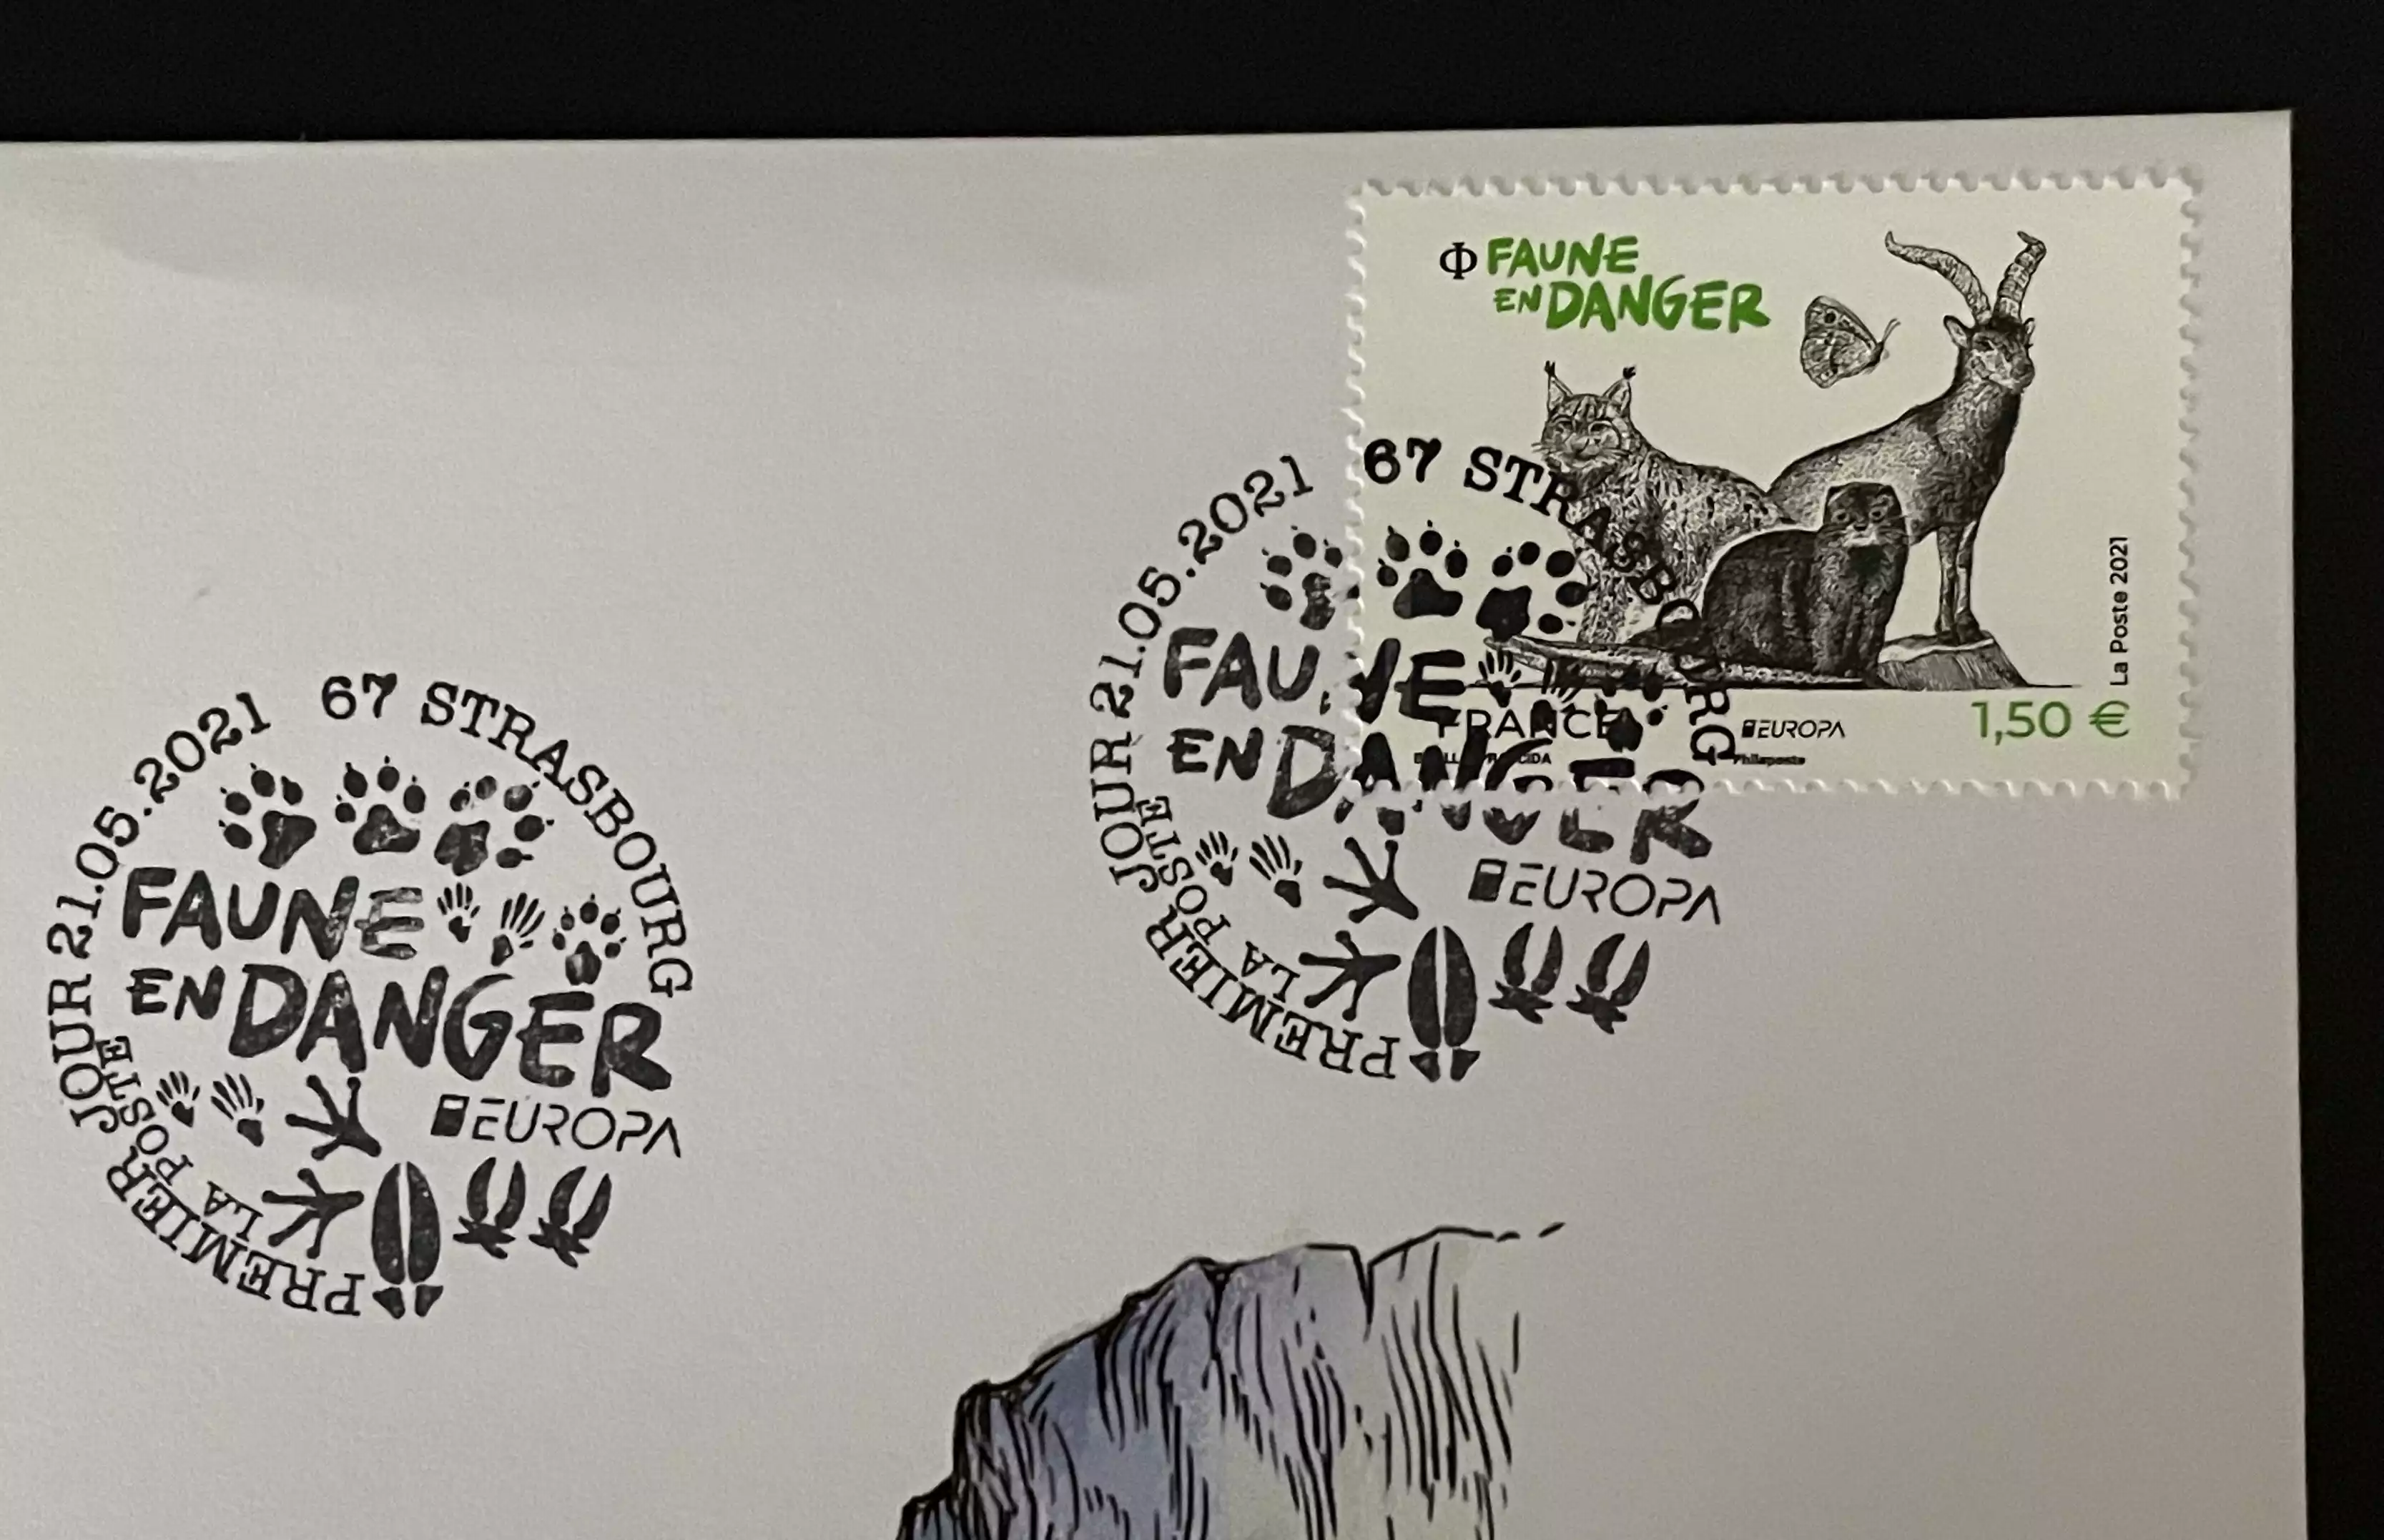 Φ FAUNE
EN DANGER
La Poste 2021
FRANCE
EUROPA
1,50 €
Philaposte
PREMIER JOUR 21.05.2021 67 STRASBOURG
FAUNE
EN DANGER
EUROPA
LA POSTE
PREMIER JOUR 21.05.2021 67 STRASBOURG
FAUNE
EN DANGER
EUROPA
LA POSTE